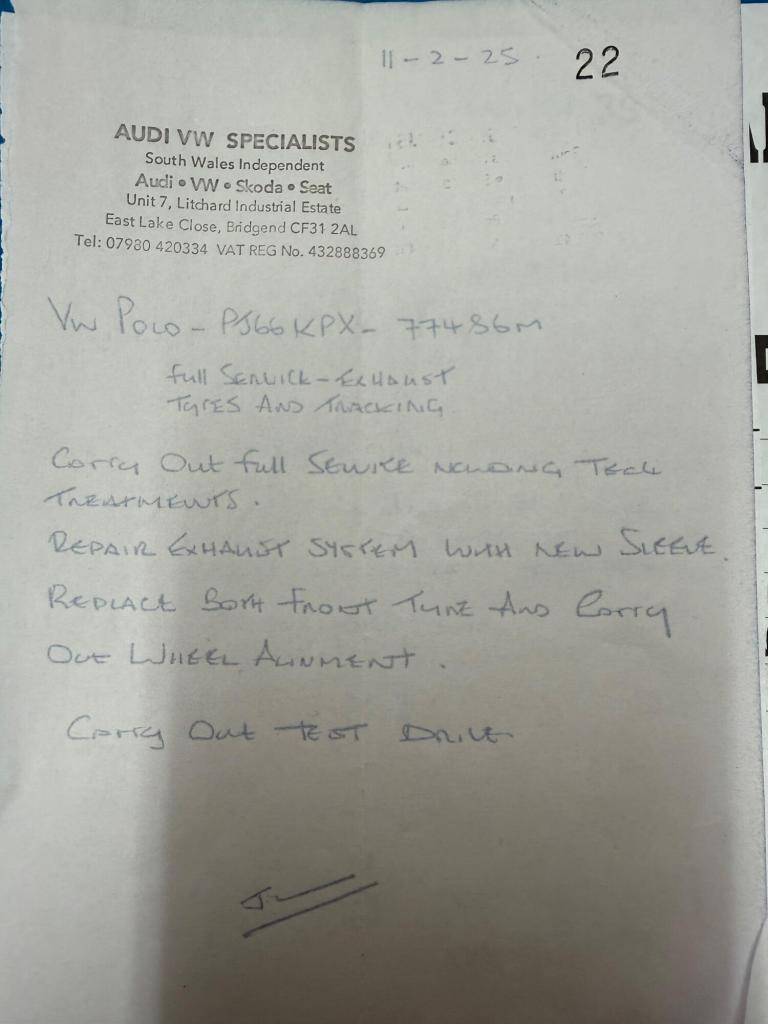 11-2-25.
22
AUDI VW SPECIALISTS
South Wales Independent
Audi • VW • Skoda • Seat
Unit 7, Litchard Industrial Estate
East Lake Close, Bridgend CF31 2AL
Tel: 07980 420334 VAT REG No. 432888369
VW POLO - PJ66KPX - 77486M
full SERVICE - EXHAUST
TYRES AND TRACKING
Carry Out full SERVICE TECH
TREATMENTS.
REPAIR EXHAUST SYSTEM WITH NEW SLEEVE.
REPLACE BOTH FRONT TYRE AND Carry
OUT WHEEL ALINMENT.
Carry Out TEST DRIVE